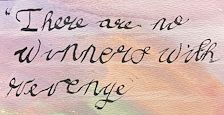 "There are no
winners with
revenge